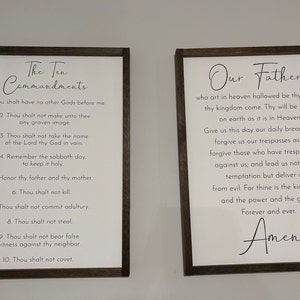 The Ten
Commandments
shalt have no other Gods before me.
2. Thou shalt not make unto thee
any graven image.
3. Thou shalt not take the name
of the Lord thy God in vain.
4. Remember the sabbath day,
to keep it holy.
Honor thy father and thy mother
6. Thou shalt not kill.
Thou shalt not commit adultury.
8. Thou shalt not steal.
9. Thou shalt not bear false
witness against thy neighbor.
10. Thou shalt not covet.
Our Father
who art in heaven hallowed be thy
thy kingdom come. Thy will be
on earth as it is in Heaven
Give us this day our daily
forgive us our trespasses as
forgive those who have
against us; and lead us not
temptation but deliver
from evil. For thine is the
and the power and the
Forever and ever.
Amen